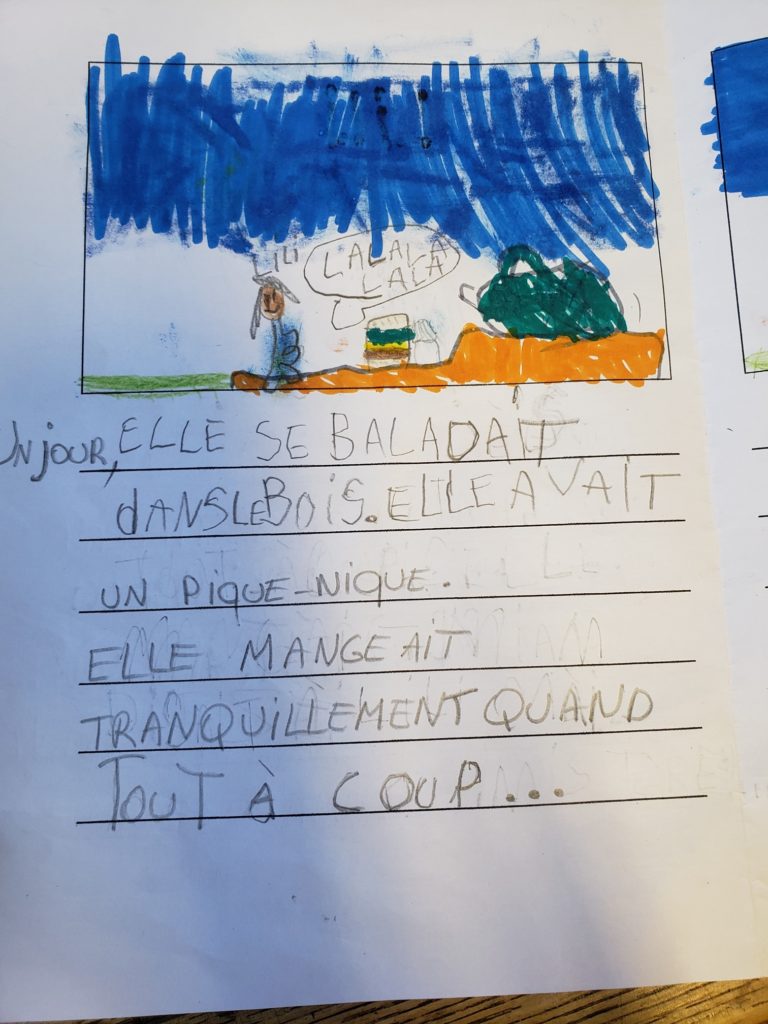 LILI
LALALA
LALA
UN JOUR, ELLE SE BALADAIT
dANS LE BOIS. ELLE AVAIT
UN PIQUE-NIQUE.
ELLE MANGEAIT
TRANQUILLEMENT QUAND
TOUT À COUP...